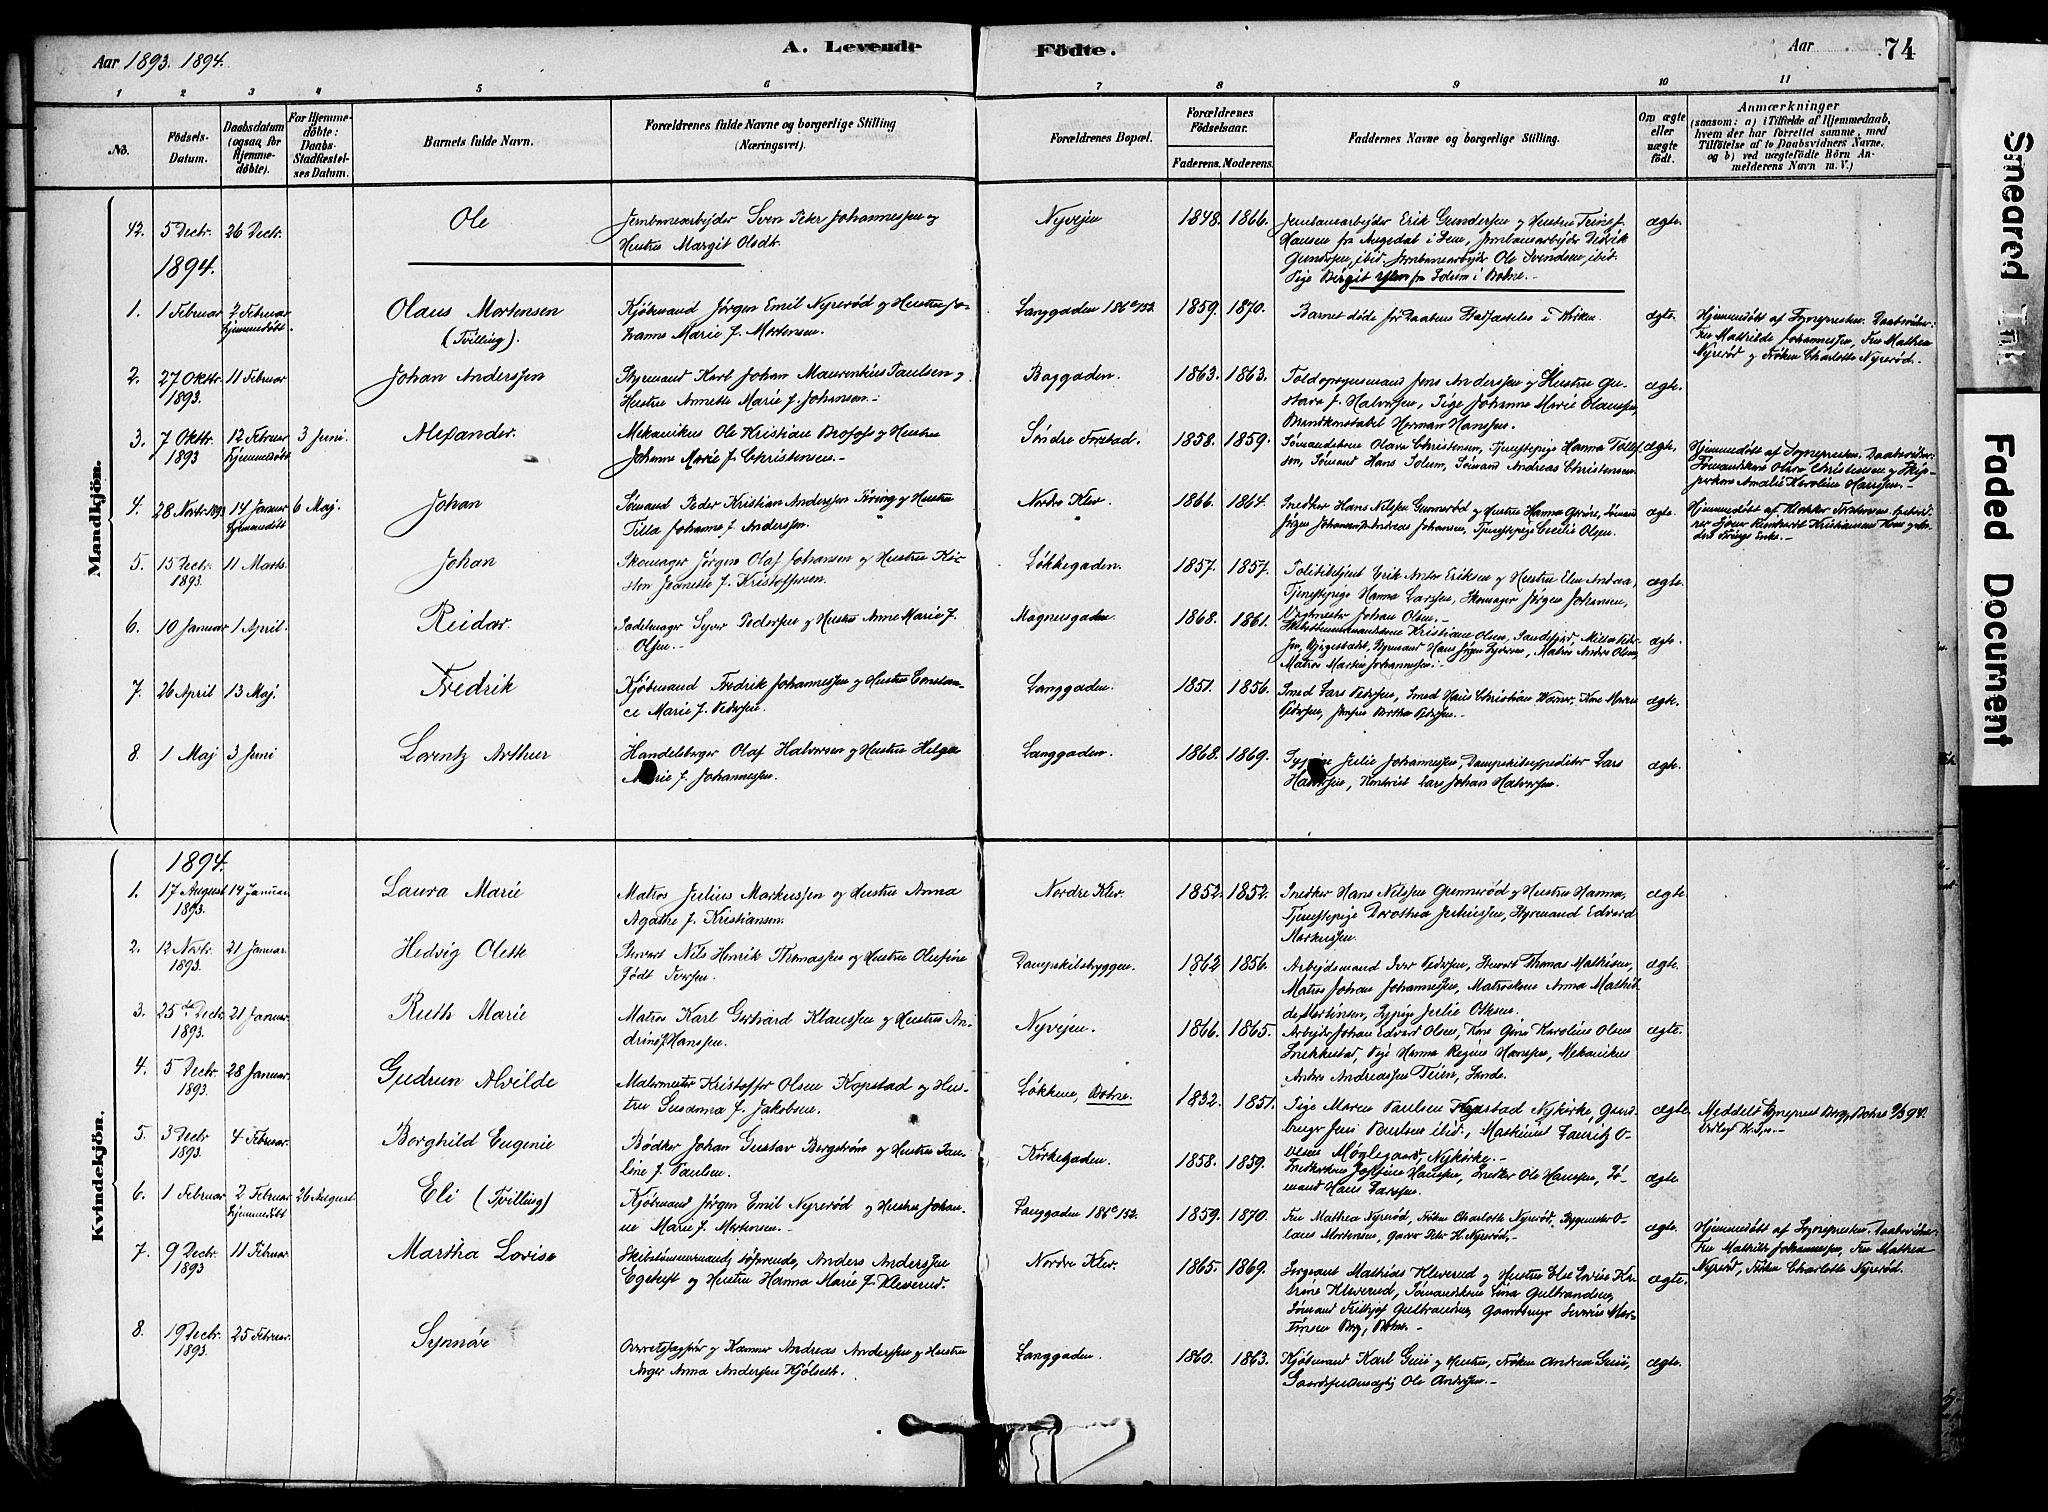 Aar 1893. 1894.
A. Levende Födte.
Aar
74
1 2 3 4 5 6 7 8 9 10 11
No.
Födsels-Datum.
Daabsdatum (ogsaa for Hjemme-døbte).
For Hjemme-døbte: Daabs-Stadfæstel-ses Datum.
Barnets fulde Navn.
Forældrenes fulde Navne og borgerlige Stilling (Næringsvei).
Forældrenes Bopæl.
Forældrenes Fødselsaar.
Faderens. Moderens.
Faddernes Navne og borgerlige Stilling.
Om ægte eller uægte født.
Anmærkninger
(saasom: a) i Tilfælde af Hjemmedaab, hvem der har forrettet samme, med Tilföielse af to Daabsvidners Navne, og b) ved uægtefödte Börn An-melderens Navn m. V.)
Mandkjön.
42. 5 Decbr. 26 Decbr.
Ole
Jernbanearbejder Sven Peter Johannessen og
Hustru Margit Olsdtr.
Nyvejen
1848. 1866.
Jernbanearbejder Erik Gundersen og Hustru
Gundersen, ibid. Jernbanearbejder Ole Svendsen, ibid.
ægte.
1894.
1. 1 Februar 2 Februar Hjemmedöbt.
Olaus Mortensen
(Tvilling).
Kjöbmand Jörgen Emil Nyreröd og Hustru Jo-
hanne Marie f. Mortensen.
Langgaden 186c/152.
1859. 1870.
Barnet døde før Daabens Stadfæstelse i Kirken.
ægte.
Hjemmedöbt af Sognepresten. Daabsvidner:
Fru Mathilde Johannessen, Fru Mathea
Nyreröd og Fröken Charlotte Nyreröd.
2. 27 Oktbr. 1893. 11 Februar
Johan Anderssen
Styrmand Karl Johan Maurentius Paulsen og
Hustru Annette Marie f. Johansen.
Baggaden.
1863. 1863.
Toldopsynsmand Jens Anderssen og Hustru Gu-
stava f. Halvorsen, Pige Johanne Marie Olaussen,
Brandkonstabel Herman Hanssen.
ægte.
3. 7 Oktbr. 1893 12 Februar Hjemmedöbt 3 Juni.
Alexander.
Mekanikus Ole Kristian Brofoss og Hustru
Johanne Marie f. Christensen.
Søndre Forstad.
1858. 1859.
Sømandskone Olava Christensen, Tjenestepige Hanna Tollef-
sen, Sömand Hans Solum, Sömand Andreas Christensen.
ægte.
Hjemmedöbt af Sognepresten. Daabsvidner:
Sömandskone Olava Christensen og Skip-
perkone Amalie Karoline Hanssen.
4. 28 Novbr. 1893 14 Januar Hjemmedöbt 6 Maj.
Johan
Sömand Peder Kristian Anderssen Föring og Hustru
Tilla Johanne f. Anderssen.
Nordre Klev.
1866. 1864.
Snedker Hans Nilssen Gunneröd og Hustru Hanna
Jörgen Johannes Andreas Johansen, Tjenestepige Cecilie Olsen.
ægte.
Hjemmedöbt af Klokker
5. 15 Decbr. 1893. 11 Marts.
Johan
Skomager Jörgen Olaf Johansen og Hustru Kir-
sten Jeanette f. Kristoffersen.
Løkkegaden.
1857. 1857.
Politibetjent Erik Anton Eriksen og Hustru Elen Andrea,
Tjenestepige Hanna Larssen, Skomager Jörgen Johansen,
Johan Olsen.
ægte.
6. 10 Januar 1 April.
Reidar
Sadelmager Syver Pedersen og Hustru Anne Marie f.
Olsen.
Magnusgaden.
1868. 1861.
Kristiane Olsen, Sandefjord,
Matros Andreas Olsen,
Matros Martin Johannesen.
ægte.
7. 26 April 13 Maj.
Fredrik
Kjöbmand Fredrik Johannessen og Hustru Constan-
ce Marie f. Pedersen.
Langgaden.
1851. 1856.
Smed Lars Pedersen, Smed Hans Christian Werner, Kone Maren
Pedersen, Jomfru Bertha Pedersen.
ægte.
8. 1 Maj 3 Juni
Lorentz Arthur
Handelsborger Olaf Halvorsen og Hustru Helga
Marie f. Johannessen.
Langgaden.
1868. 1869.
Sypige Julie Johannessen, Dampskibsexpeditör Lars
Halvorsen, Kontorist Lars Johan Halvorsen.
ægte.
Kvindekjön.
1894.
1. 17 August 1893. 14 Januar.
Laura Marie
Matros Julius Markussen og Hustru Anna
Agathe f. Kristiansen.
Nordre Klev.
1852. 1852.
Snedker Hans Nilssen Gunneröd og Hustru Hanna,
Tjenestepige Dorothea Juliussen, Styrmand Edvard
Markussen.
ægte.
2. 12 Novbr. 1893. 21 Januar.
Hedvig Olette
Stuert Nils Henrik Thomassen og Hustru Olufine
född Iversen.
Dampskibsbryggen.
1862 1856.
Arbejdsmand Iver Pedersen, Stuert Thomas Mathisen,
Matros Johan Johannessen, Matroskone Anna Mathil-
de Mortensen, Sypige Julie Olsen.
ægte.
3. 25de Decbr. 1893. 21 Januar.
Ruth Marie
Matros Karl Gerhard Klaussen og Hustru An-
drine f. Hanssen.
Nyvejen.
1866. 1865.
Arbejder Johan Edvard Olsen, Kone Gina Karoline Olsen
Snekkestad, Pige Hanna Regine Hanssen, Mekanikus
Anders Andreassen Teien, Sande.
ægte.
4. 5 Decbr. 1893. 28 Januar.
Gudrun Alvilde
Malermester Kristoffer Olsen Kopstad og Hus-
tru Susanna f. Jakobsen.
Løkken, Botne.
1832. 1851.
Pige Maren Paulsen Kopstad Nykirke, Gaard-
bruger Jens Paulsen ibid., Maskinist Lauritz O-
lsen Møglegaard, Nykirke.
ægte.
Meddelt Sogneprest Berg, Botne
5. 3 Decbr. 1893. 4 Februar.
Borghild Eugenie
Bødker Johan Gustav Bergström og Hustru Pau-
line f. Paulsen.
Kirkegaden.
1858. 1859.
Snedkerkone Josefine Hanssen, Snedker Ole Hanssen, Sö-
mand Hans Larssen.
ægte
6. 1 Februar 2 Februar Hjemmedöbt 26 August
Eli (Tvilling)
Kjöbmand Jörgen Emil Nyreröd og Hustru Johan-
ne Marie f. Mortensen.
Langgaden 186c/152.
1859. 1870.
Fru Mathea Nyreröd, Fröken Charlotte Nyreröd, Bygmester O-
laus Mortensen, Garver Peter H. Nyreröd.
ægte.
Hjemmedöbt af Sognepresten. Daabsvidner:
Fru Mathilde Johannessen, Fru Mathea
Nyreröd, Fröken Charlotte Nyreröd.
7. 9 Decbr. 1893 11 Februar
Martha Lovise
Skibstömmermand, söfarende, Anders Anderssen
Egetuft og Hustru Hanna Marie f. Kleverud.
Nordre Klev.
1865. 1869.
Sergeant Mathias Kleverud og Hustru Else Lovise Ka-
trine Kleverud, Sömandskone Lina Gulbrandsen,
Sömand Fritjof Gulbrandsen, Gaardbruger Severin Mar-
tinsen Berg, Botne.
ægte.
8. 19 Decbr. 1893. 25 Februar.
Synnöve
Overretssagförer og Kæmner Andreas Anderssen og Hustru
Inger Anna Anderssen Kjölseth.
Langgaden.
1860. 1863.
Kjöbmand Karl Guii og Hustru, Fröken Andrea Guii,
Gaardsfuldmægtig Ole Anderssen.
ægte.
Smeared Ink
Faded Document